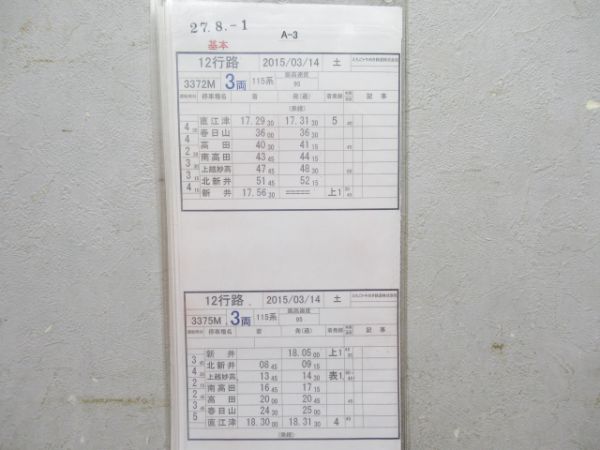 27.8.-1
A-3
基本
12行路 2015/03/14 土 えちごトキめき鉄道株式会社
3372M 3両 115系 最高速度 95
運転時分 停車場名 着 発(通) 着発線 記事
直江津 17.29 30 17.31 30 5
4 春日山 36 00 36 30
4 高田 40 30 41 15
2 南高田 43 45 44 15
3 上越妙高 47 45 48 30
3 北新井 51 45 52 15
4 新井 17.56 30 ===== 上1
12行路 2015/03/14 土 えちごトキめき鉄道株式会社
3375M 3両 115系 最高速度 95
運転時分 停車場名 着 発(通) 着発線 記事
新井 18.05 00 上1
3 北新井 08 45 09 15
4 上越妙高 13 45 14 30 表1
2 南高田 16 45 17 15
2 高田 20 00 20 45
3 春日山 24 30 25 00
5 直江津 18.30 00 18.31 30 4